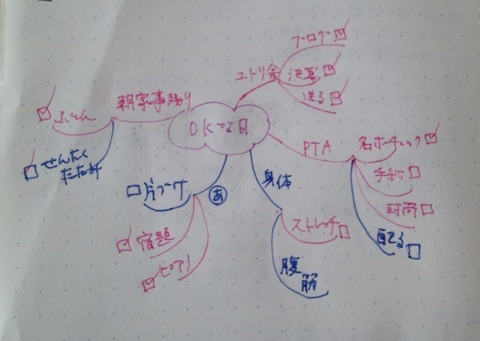 ブログ
ユトリ会
決算
送る
朝家事残り
ふとん
せんたく
たたみ
PTA
名ボチェック
手紙
封筒
配る
身体
ストレッチ
腹筋
あ
片づけ
宿題
ピアノ